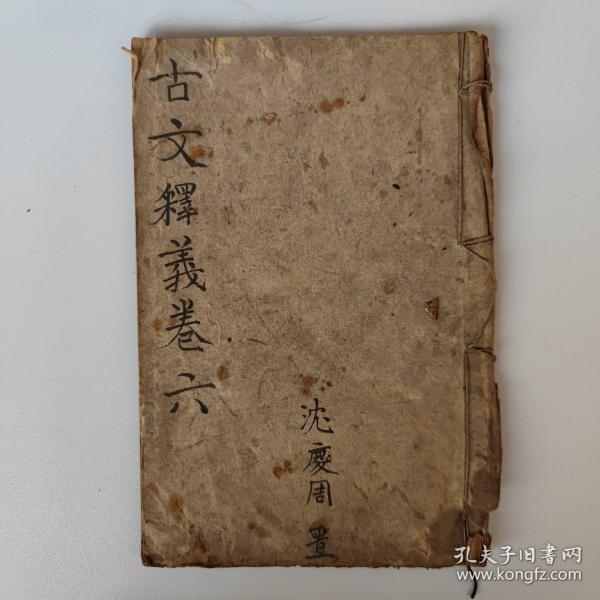 古文釋義卷六
沈慶周 置
孔夫子旧書网
www.kongfz.com